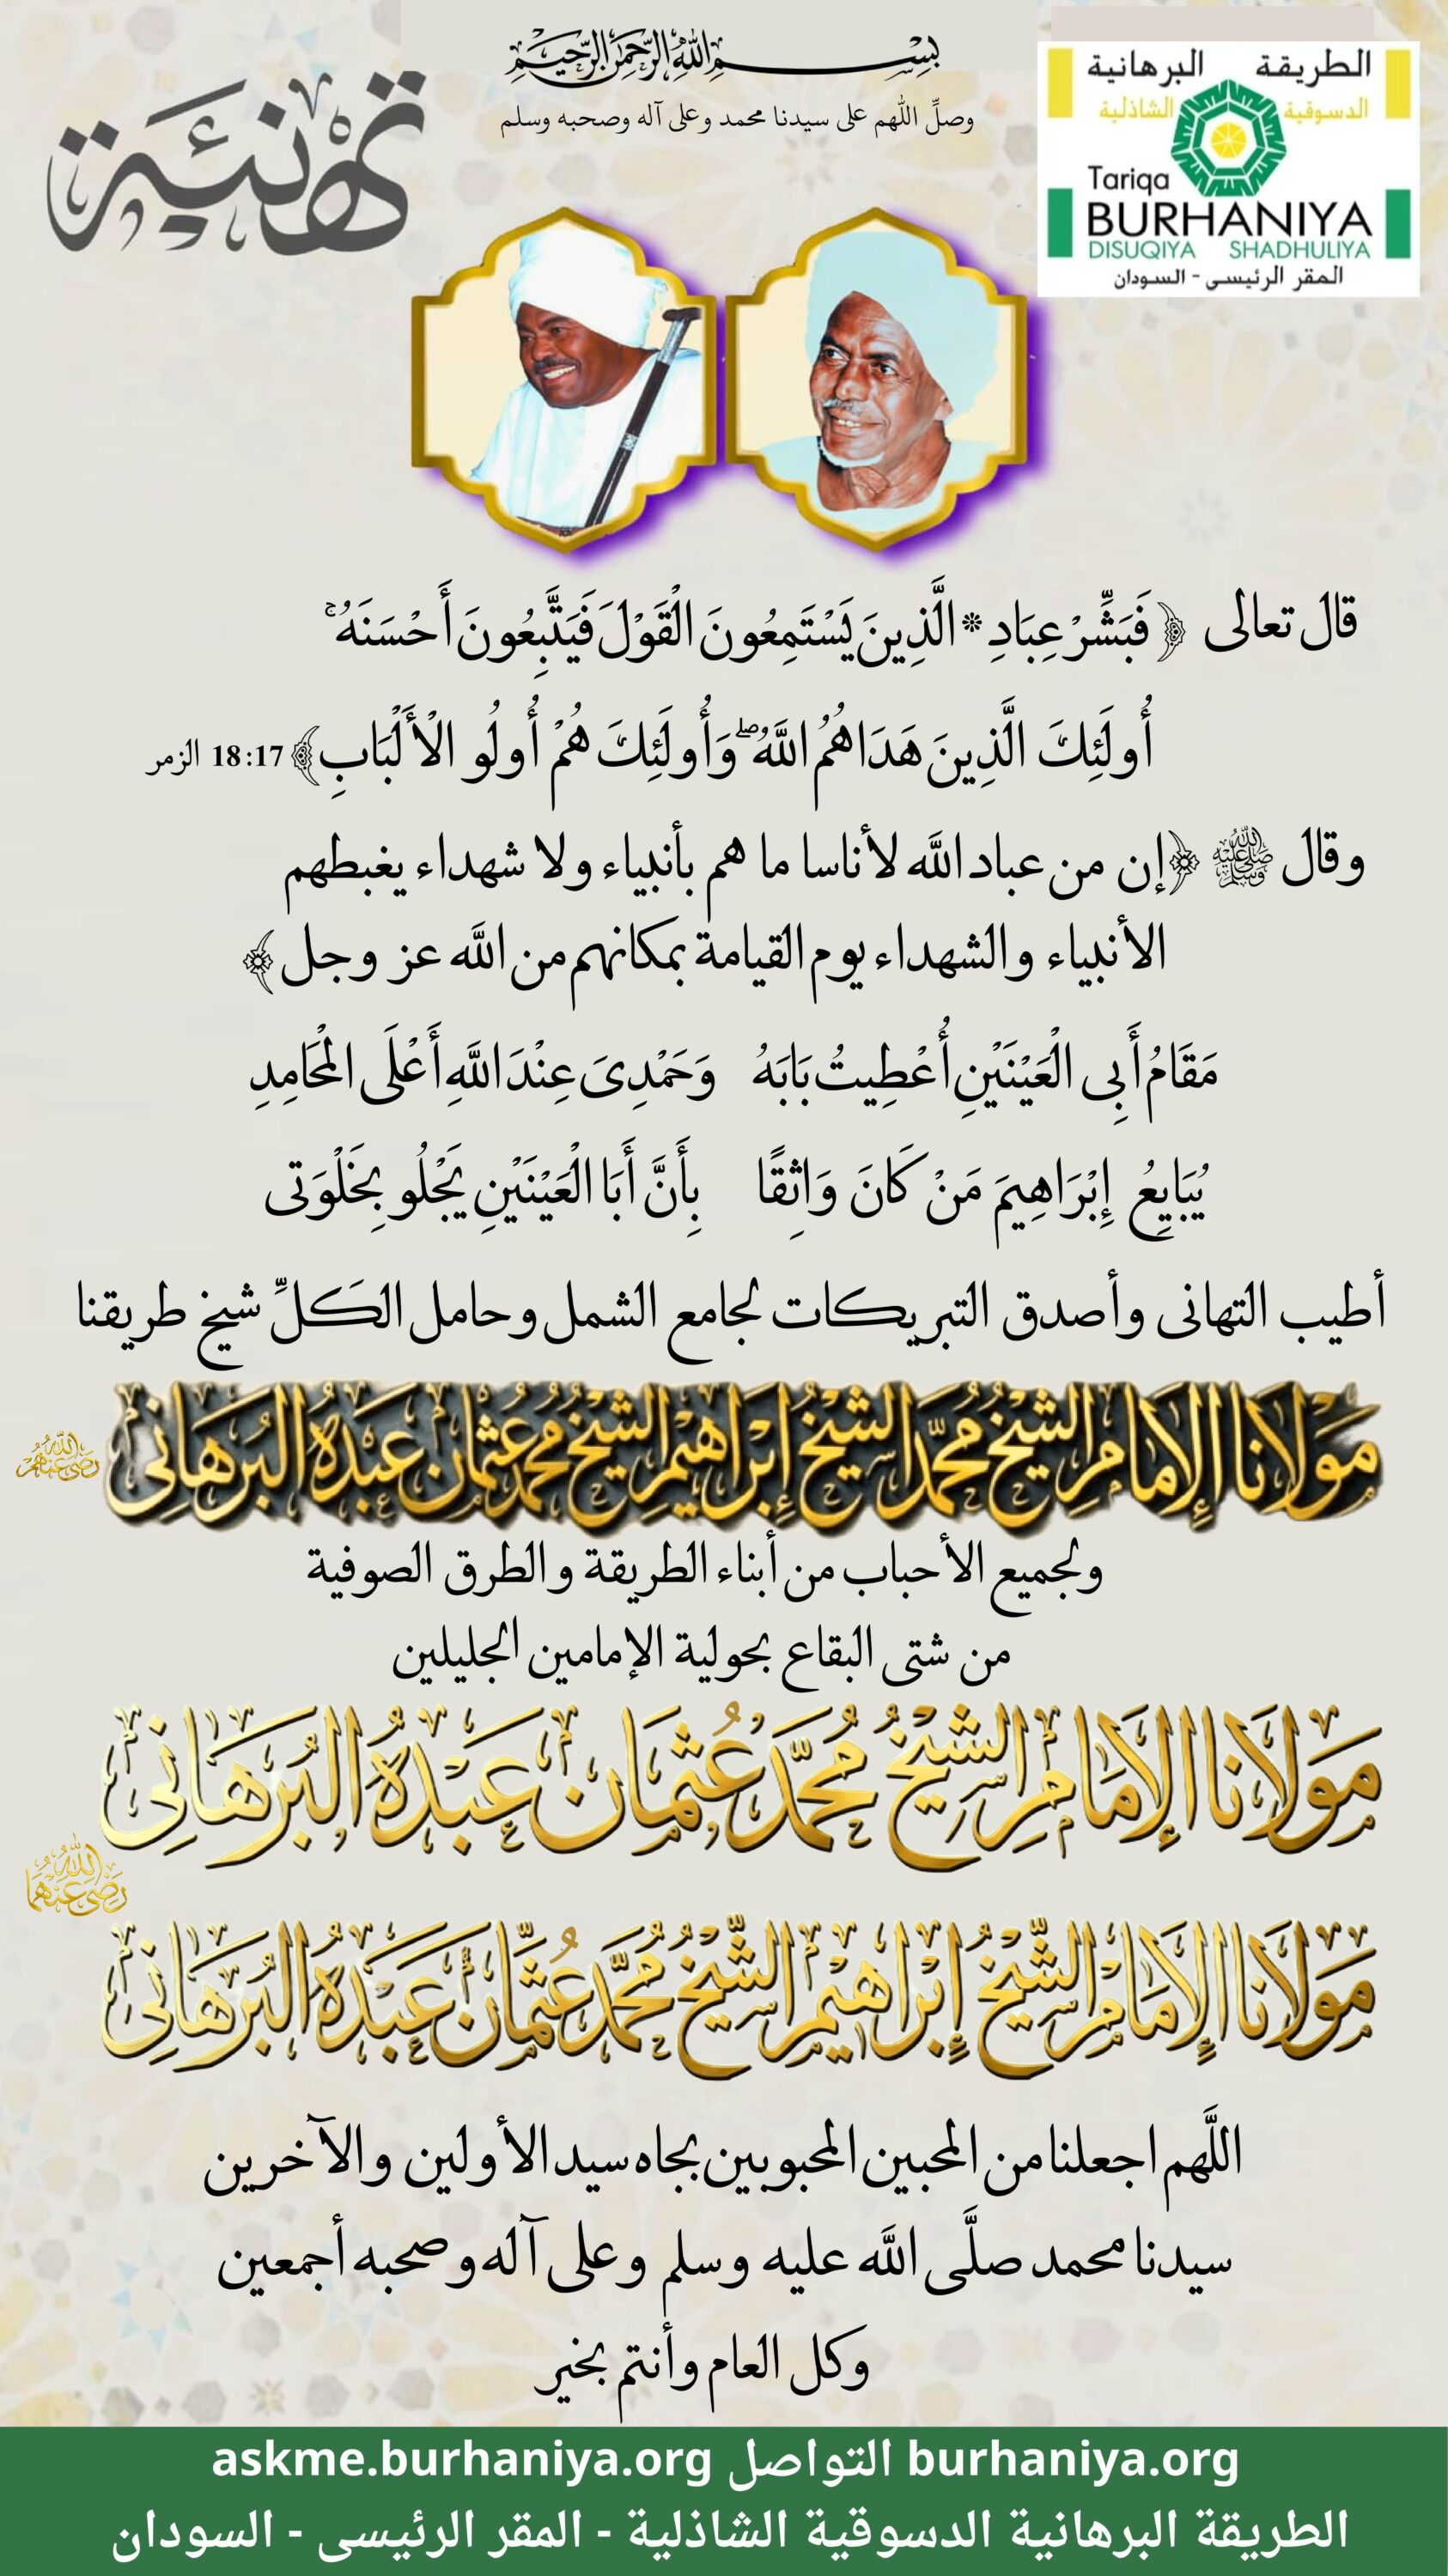 بسم الله الرحمن الرحيم
وصلِّ اللهم على سيدنا محمد وعلى آله وصحبه وسلم
تهنئة
الطريقة البرهانية
الدسوقية الشاذلية
Tariqa
BURHANIYA
DISUQIYA SHADHULIYA
المقر الرئيسى - السودان
قال تعالى ﴿فَبَشِّرْ عِبَادِ * الَّذِينَ يَسْتَمِعُونَ الْقَوْلَ فَيَتَّبِعُونَ أَحْسَنَهُ ۚ
أُولَئِكَ الَّذِينَ هَدَاهُمُ اللَّهُ ۖ وَأُولَئِكَ هُمْ أُولُو الْأَلْبَابِ﴾ 18:17 الزمر
وقال ﷺ ﴿إن من عباد الله لأناسا ما هم بأنبياء ولا شهداء يغبطهم
الأنبياء والشهداء يوم القيامة بمكانهم من الله عز وجل﴾
مَقَامُ أَبِى الْعَيْنَيْنِ أُعْطِيتُ بَابَهُ وَحَمْدِىَ عِنْدَ اللَّهِ أَعْلَى الْمَحَامِدِ
يُبَايِعُ إِبْرَاهِيمَ مَنْ كَانَ وَاثِقًا بِأَنَّ أَبَا الْعَيْنَيْنِ يَجْلُو بِخَلْوَتِى
أطيب التهانى وأصدق التبريكات لجامع الشمل وحامل الكَلِّ شيخ طريقنا
مولانا الإمام الشيخ محمد الشيخ إبراهيم الشيخ محمد عثمان عبده البرهانى
رضى الله عنهم
ولجميع الأحباب من أبناء الطريقة والطرق الصوفية
من شتى البقاع بحولية الإمامين الجليلين
مولانا الإمام الشيخ محمد عثمان عبده البرهانى
رضى الله عنهما
مولانا الإمام الشيخ إبراهيم الشيخ محمد عثمان عبده البرهانى
اللَّهم اجعلنا من المحبين المحبوبين بجاه سيد الأولين والآخرين
سيدنا محمد صلَّى الله عليه وسلم وعلى آله وصحبه أجمعين
وكل العام وأنتم بخير
burhaniya.org التواصل askme.burhaniya.org
الطريقة البرهانية الدسوقية الشاذلية - المقر الرئيسى - السودان